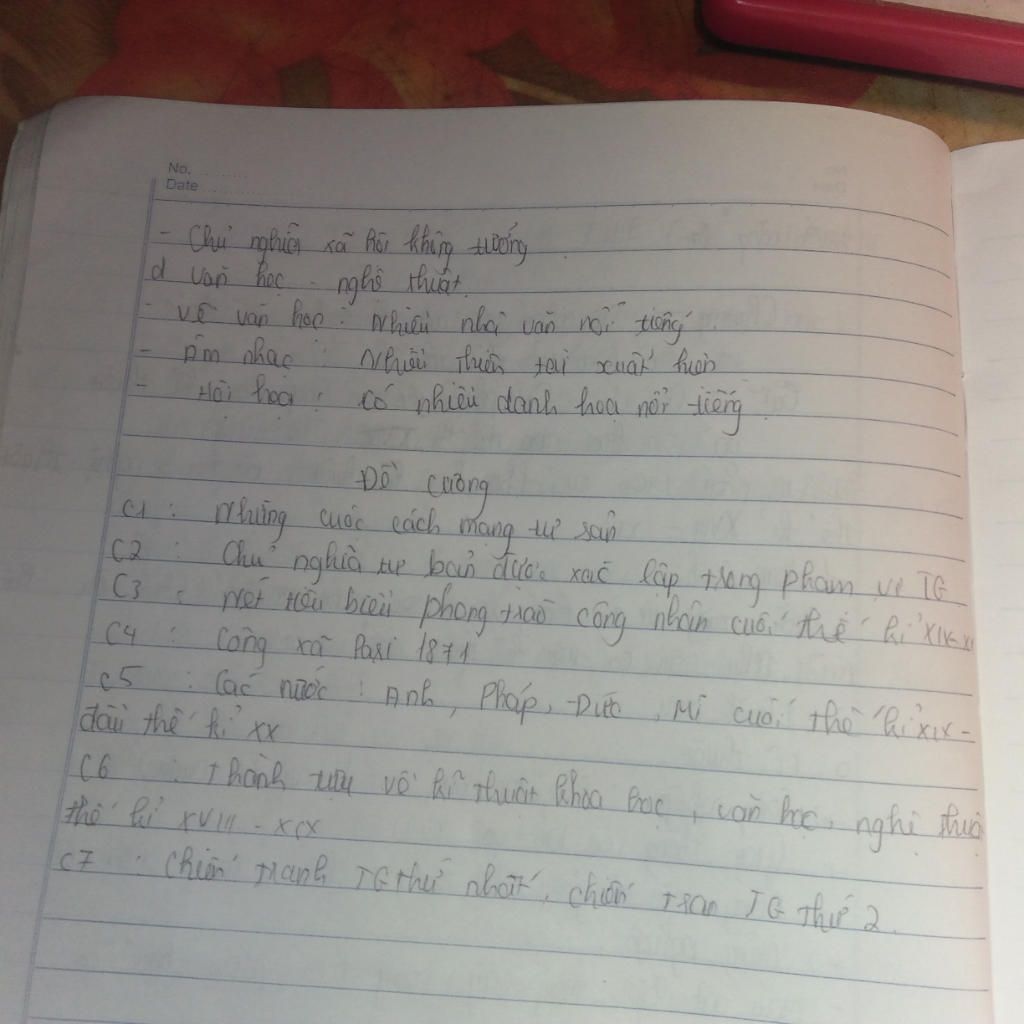 No.
Date
- Chủ nghĩa xã hội không tưởng
d văn học - nghệ thuật.
- Về văn học : Nhiều nhà văn nổi tiếng.
- Âm nhạc : Nhiều thiên tài xuất hiện
- Hội họa : có nhiều danh họa nổi tiếng.
Đề cương
C1 : Những cuộc cách mạng tư sản
C2 : Chủ nghĩa tư bản được xác lập trong phạm vi TG
C3 : Nét tiêu biểu phong trào công nhân cuối thế kỉ XIX-
C4 : Công xã Pari 1871
C5 : Các nước : Anh, Pháp, Đức, Mĩ cuối thế kỉ XIX -
đầu thế kỉ XX
C6 : Thành tựu về kĩ thuật khoa học, văn học, nghệ thuậ
thế kỉ XVIII - XIX
C7 : Chiến tranh TG thứ nhất, chiến tran TG thứ 2.